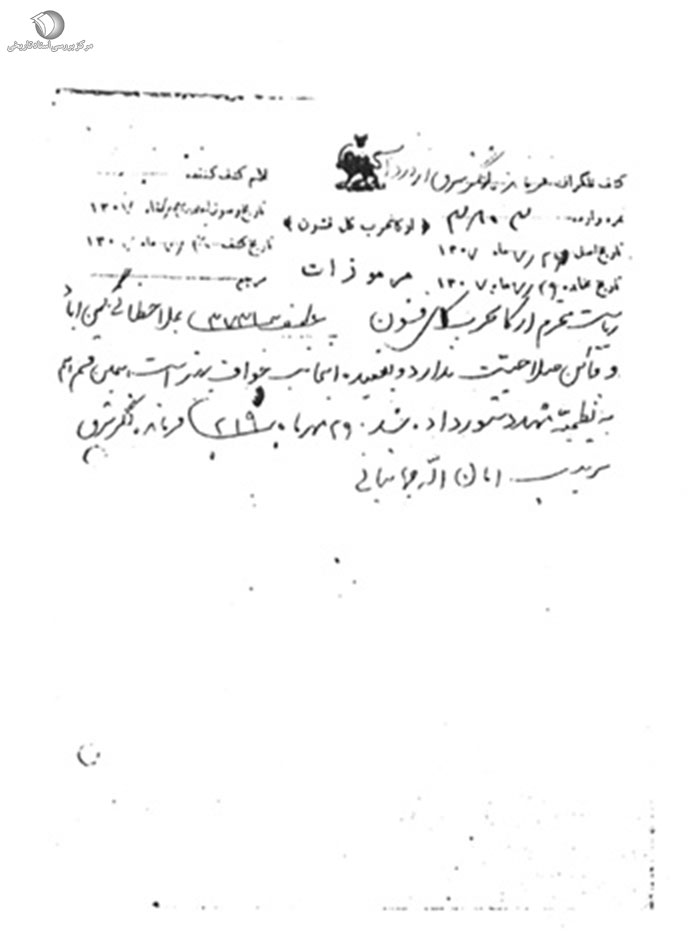 مرکز بررسی اسناد تاریخی
کشف تلگراف رمز از لشکر شرق اردو
اسم کشف کننده
نمره وارده ۳۸۰۳
﴿ ارکانحرب کل قشون ﴾
تاریخ وصول ۱۳۰۷
تاریخ اصل ۲۹ / ۷ ماه ۱۳۰۷
تاریخ کشف ماه ۱۳۰
تاریخ مخابره ۲۹ / ۷ ماه ۱۳۰۷
مرموزات
مرجع
ریاست محترم ارکانحرب کل قشون عطف ۳۷۳۸۳ بملاحظاتی
و قائن صلاحیت ندارد و تبعید اینجانب خواف بهتر است. همین قسم هم
به نظمیه مشهد دستور داده شد. ۲۹ مهرماه ۲۱۹ فرمانده لشکر شرق
سرتیپ امان الله جهانبانی